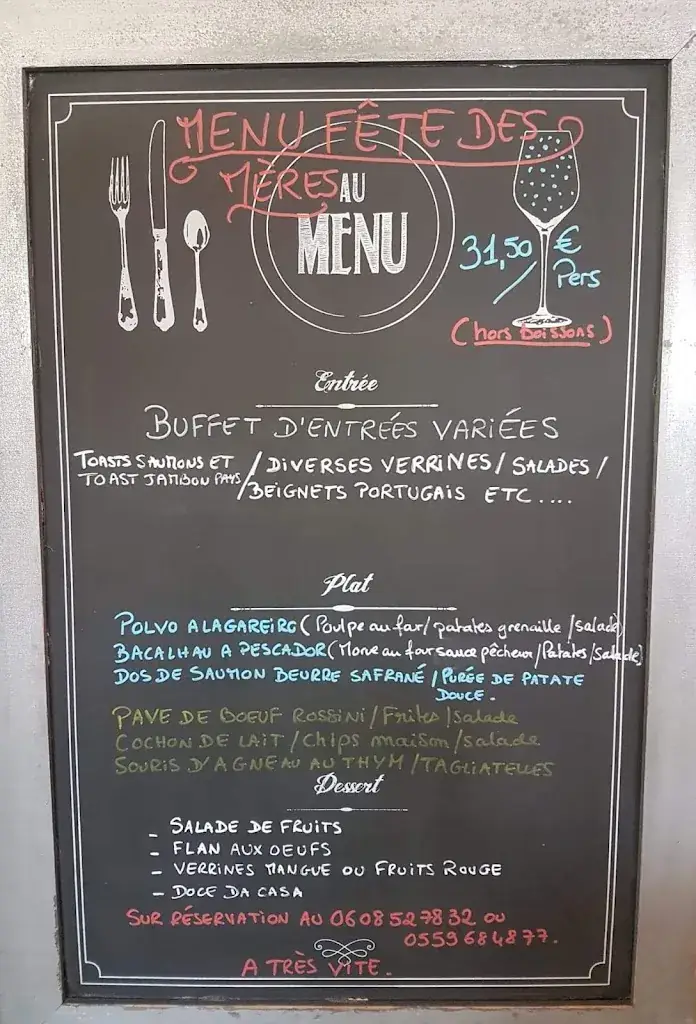 MENU FÊTE DES
MÈRES
AU
MENU
31,50 / €
Pers
(hors Boissons)
Entrée
BUFFET D'ENTRÉES VARIÉES
TOASTS SAUMONS ET / DIVERSES VERRINES / SALADES /
TOAST JAMBON PAYS / BEIGNETS PORTUGAIS ETC ....
Plat
POLVO A LAGAREIRO (Poulpe au four / patates grenaille / salade)
BACALHAU A PESCADOR (Morue au four sauce pêcheur / Patates / Salade)
DOS DE SAUMON BEURRE SAFRANÉ / PURÉE DE PATATE
DOUCE.
PAVE DE BOEUF ROSSINI / Frites / salade
COCHON DE LAIT / Chips maison / salade
SOURIS D'AGNEAU AU THYM / TAGLIATELLES
Dessert
- SALADE DE FRUITS
- FLAN AUX OEUFS
- VERRINES MANGUE OU FRUITS ROUGE
- DOCE DA CASA
SUR RÉSERVATION AU 0608527832 OU
0559684877.
A TRÈS VITE.